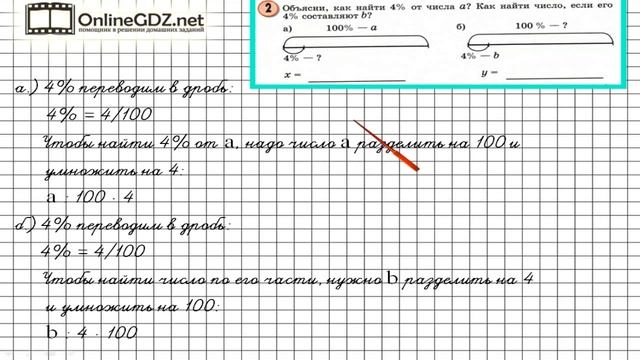 OnlineGDZ.net
помощник в решении домашних заданий
2 Объясни, как найти 4% от числа a? Как найти число, если его
4% составляют b?
а) 100% — a
4% — ?
x =
б) 100 % — ?
4% — b
y =
а.) 4% переводим в дробь:
4% = 4/100
Чтобы найти 4% от a, надо число a разделить на 100 и
умножить на 4:
a : 100 · 4
б) 4% переводим в дробь:
4% = 4/100
Чтобы найти число по его части, нужно b разделить на 4
и умножить на 100:
b : 4 · 100